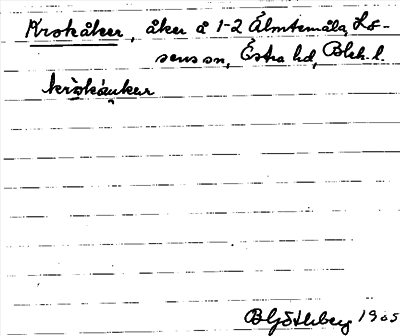 Krokåker, åker å 1-2 Älmtemåla, Lö-
sens sn, Östra hd, Blek. l.
kròkáuker
B Götlberg 1965